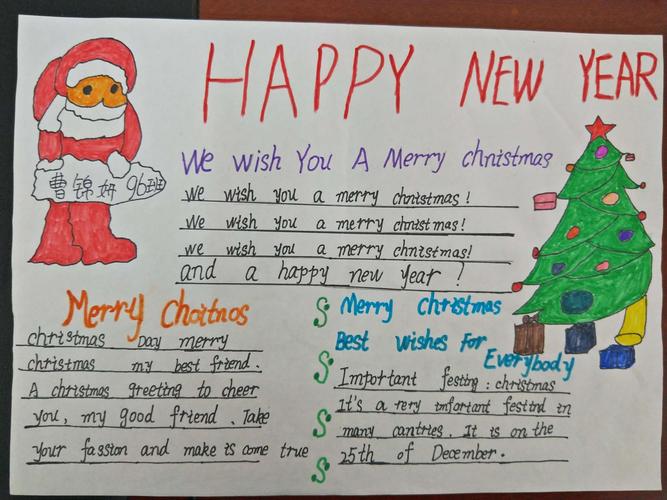 HAPPY NEW YEAR
We wish You A Merry chnistmas
曹锦妍 96班
we wish you a merry chnistmas!
We wish you a merry chnistmas!
we wish you a merry chnistmas!
and a happy new year !
Merry Choitnos
christmas Day merry
christmas my best friend.
A christmas greeting to cheer
you, my good friend. Take
your fassion and make is come true
Merry christmas
Best wishes For
Everybody
Important festing : christmas
It's a rery imforiant festind in
many cantries. It is on the
25th of December.